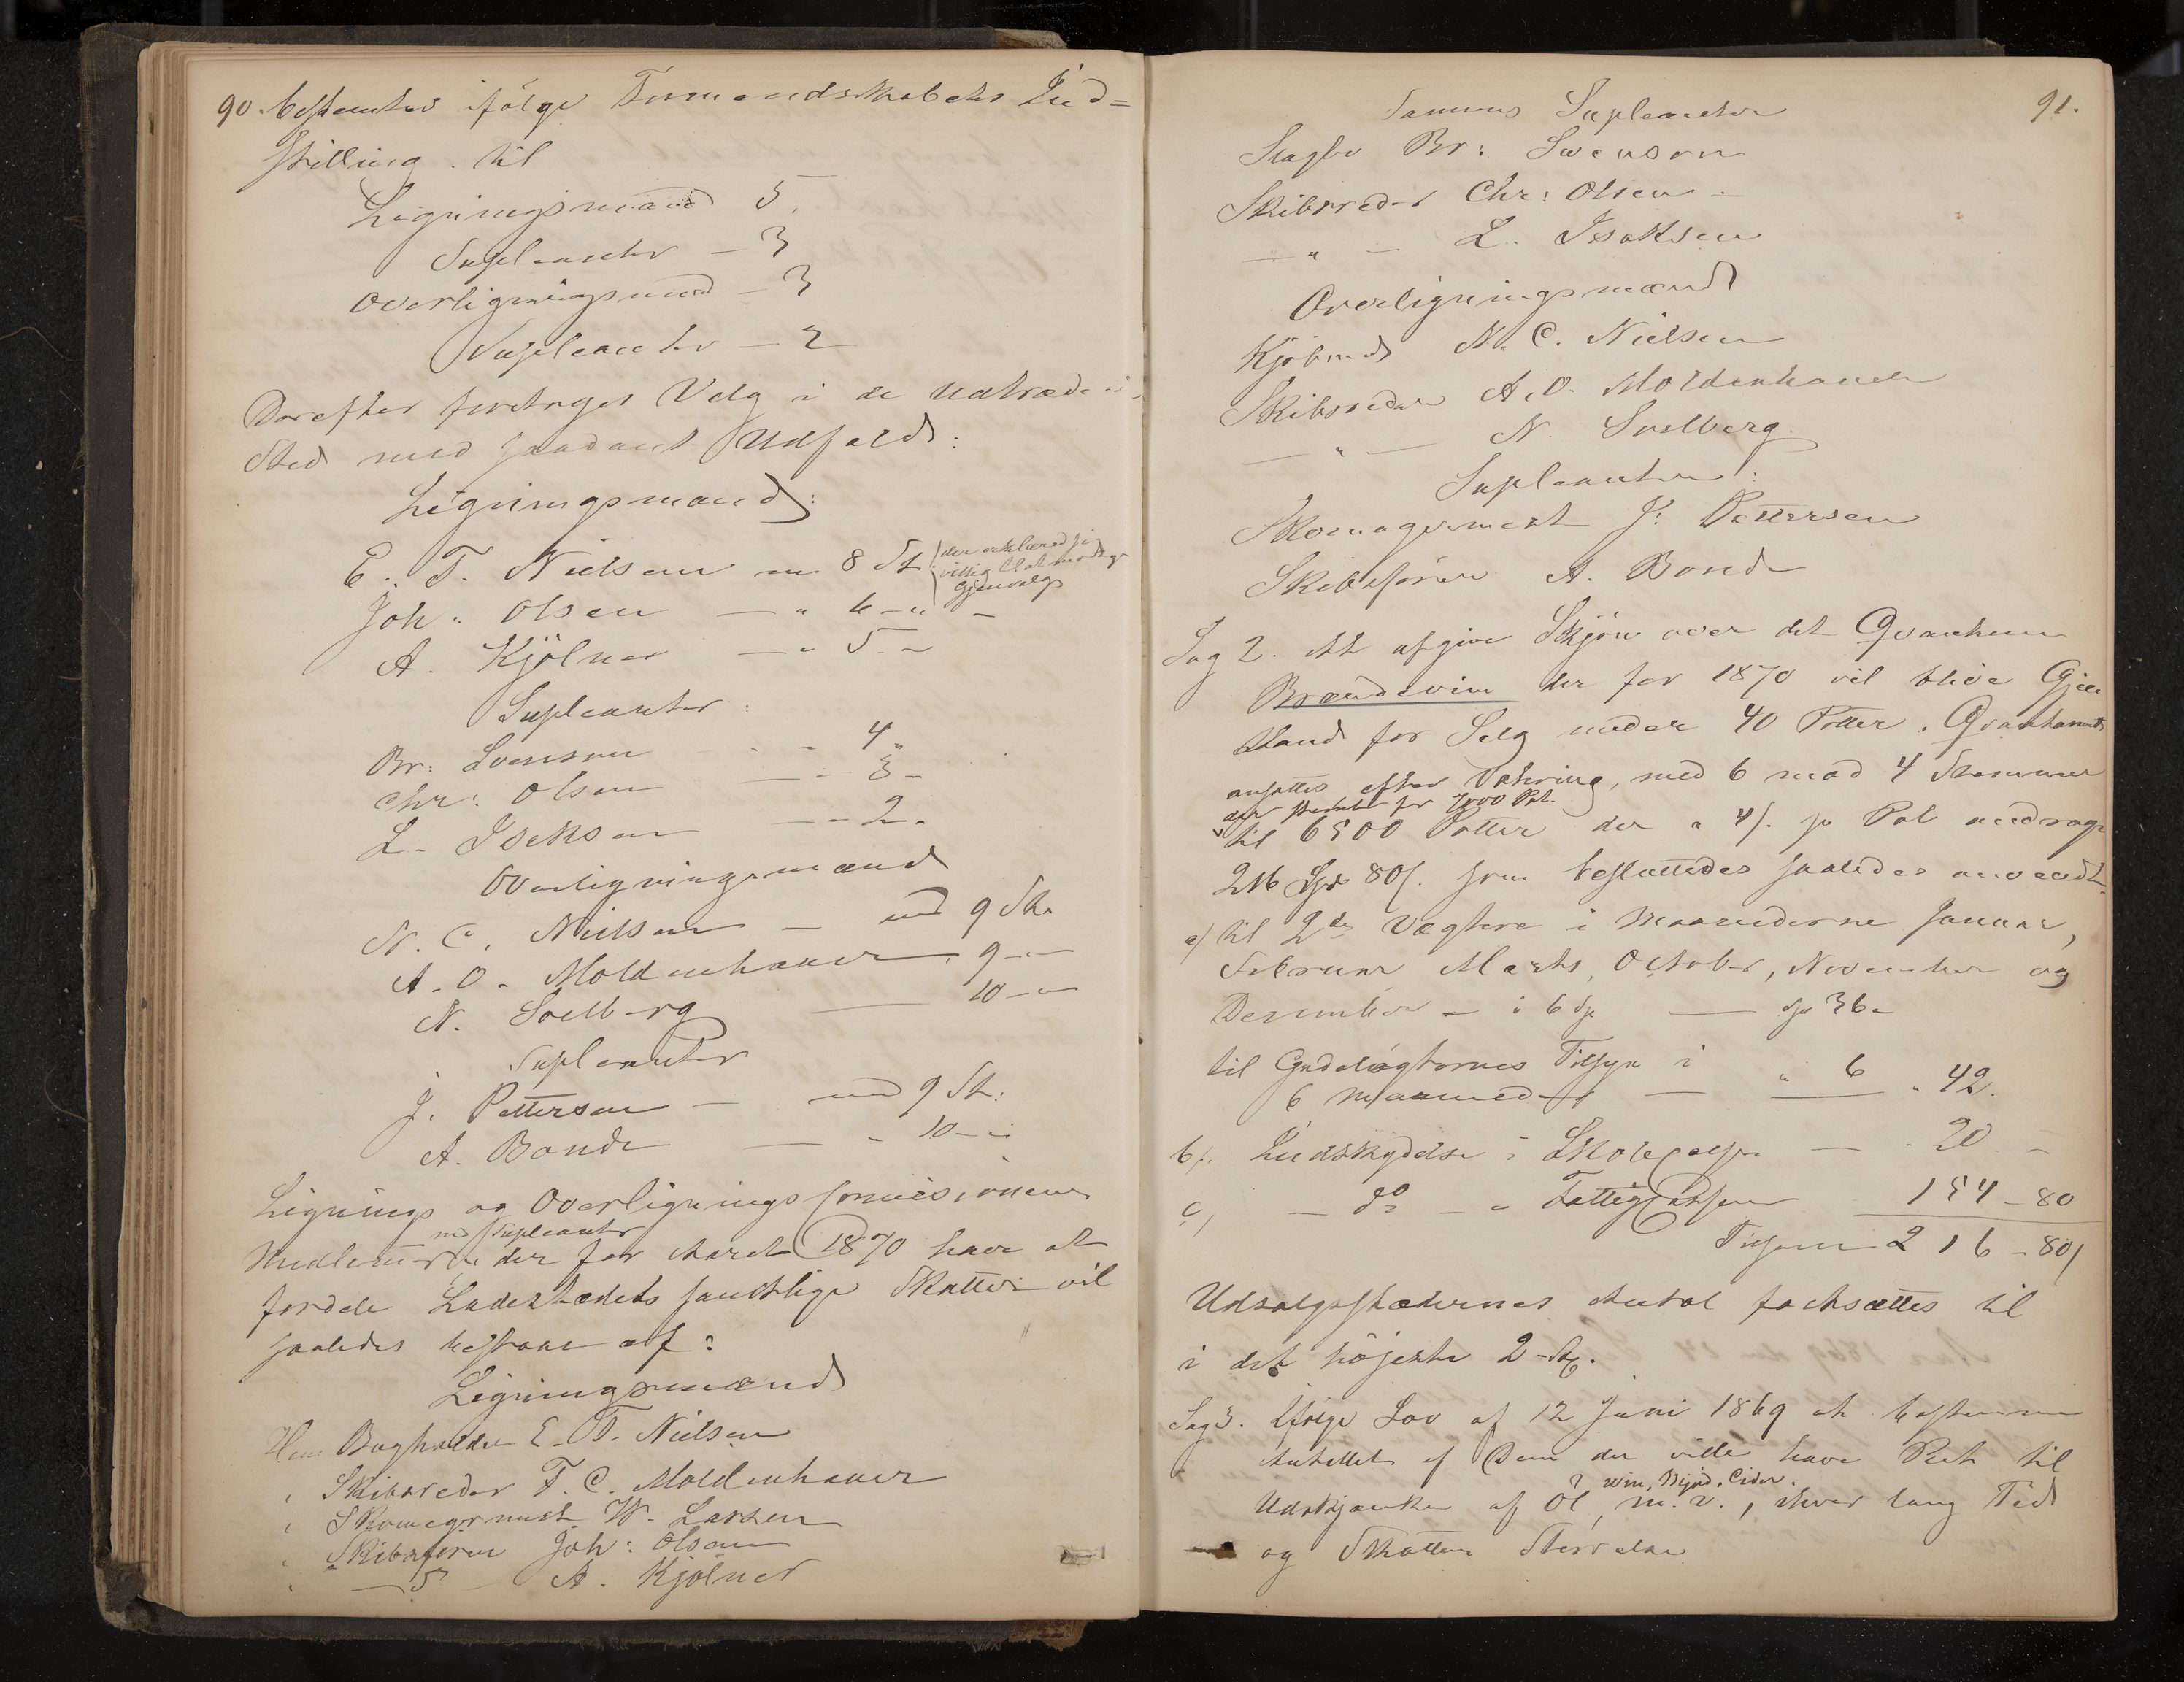 90. bestemtes ifölge Formandskabets Ind=
stilling til
Ligningsmænd 5.
Supleanter – 3
Overligningsmænd – 3
Supleanter – 2
Derefter foretoges Valg i de Udtrædenes
Sted med saadant Udfald:
Ligningsmænd:
E. T. Nielsen med 8 St. (der erklæred sig
villig til at modtage
Gjenvalg
Joh: Olsen — „ 6 – „ –
A. Kjölner — „ 5 – –
Supleanter:
Br: Svenson - - - 4 „
Chr: Olsen — - 3 –
L. Isaksen — - 2 „
Overligningsmænd
N. C. Nielsen — med 9 St.
A. O. Moldenhauer „ 9 – –
N. Soelberg — 10 – –
Supleanter
J. Pettersen — med 9 St.
A. Bonde — „ 10 – „
Lignings og Overligningscomissionens
med Supleanter
Medlemmer der for Aaret 1870 have at
fordele Ladestædets samtlige Skatter vil
saaledes bestaae af:
Ligningsmænd
Herr Bogholder E. T. Nielsen
„ Skibsreder F. C. Moldenhauer
„ Skomagermest W. Larsen
„ Skibsförer Joh: Olsen
„ — „ — A. Kjölner
91.
Sammes Supleanter
Slagter Br: Svenson
Skibsreder Chr: Olsen –
— „ — L. Isaksen
Overligningsmænd
Kjöbmd N. C. Nielsen
Skibsreder A. O. Moldenhauer
— „ — N. Soelberg
Supleanter:
Skomagermest J: Pettersen
Skibsförer A. Bonde
Sag 2. At afgive Skjön over det Qvantum
Brændeviin der for 1870 vil blive Gjen
stand for Salg under 40 Potter. Qvantumet
ansattes efter Votering, med 6 mod 4 Stemmer
der stemte for 7000 Pot.
til 6500 Potter der a 4/. pr Pot andrage
216 Spd 80/. som besluttedes saaledes anvendt.
a/ til 2de Vægtere i Maanederne Januar,
Februar Marts, October, November og
December – i 6 Sp — Sp 36 –
til Gadelögternes Tilsyn i
6 Maaneder — „ 6 „ 42.
b/. Indskydelse i Skolecassen — 20 –
c/ — do — „ Fattigcassen 154 – 80
Tilsammen 216 – 80/
Udsalgsstædernes Antal fastsættes til
i det höjeste 2 St.
Sag 3. Ifölge Lov af 12 Juni 1869 at bestemme
Antallet af Dem der ville have Ret til
Viin, Mjød, Cider.
Udskjænken af Öl, m. v., ihvor lang Tid
og Skattens Störrelse